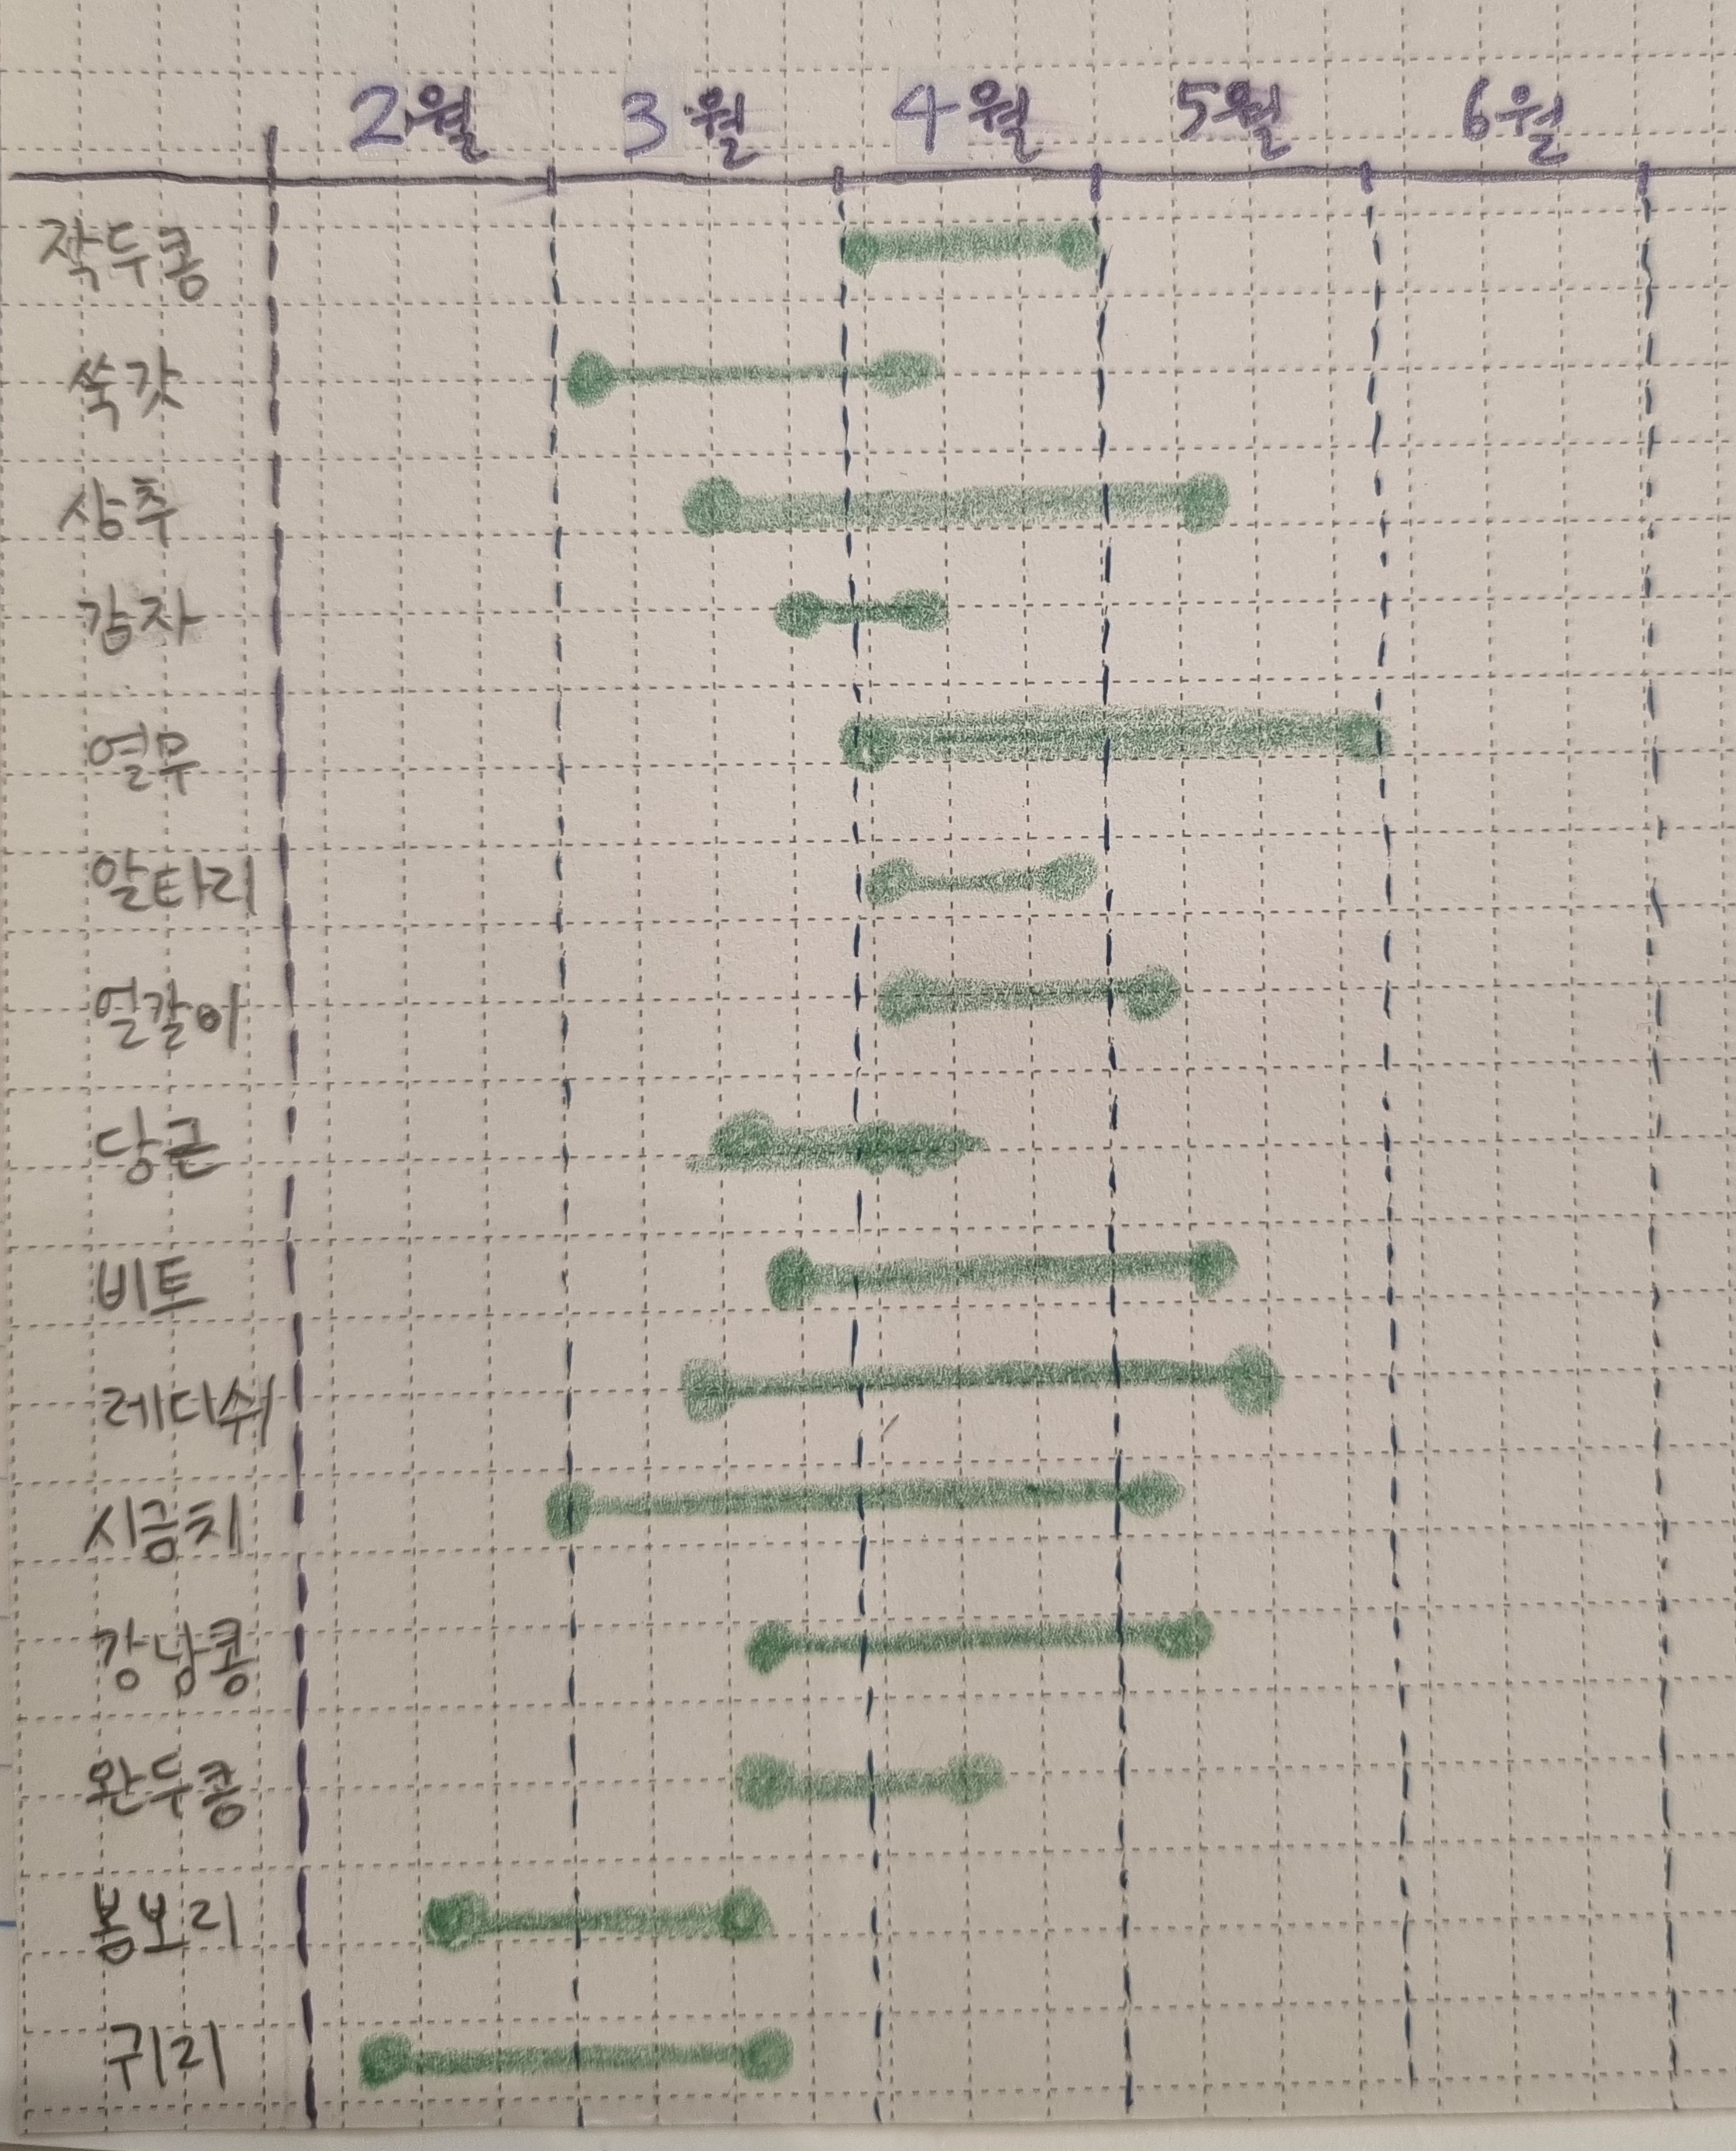 2월 3월 4월 5월 6월
작두콩
쑥갓
상추
감자
열무
알타리
얼갈이
당근
비트
레다쉬
시금치
강낭콩
완두콩
봄보리
귀리